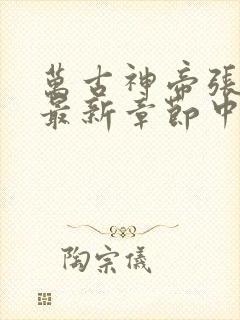 萬古神帝張
最新章節中
陶宗儀